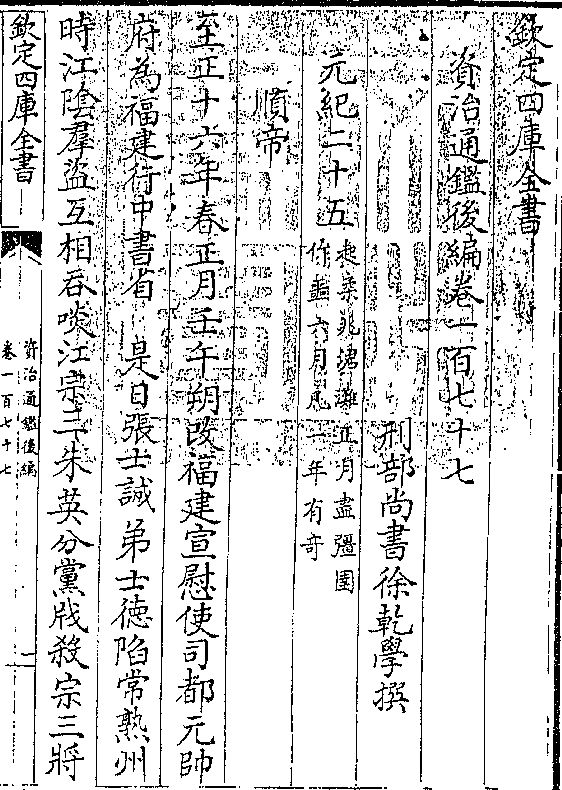 欽定四庫全書
資治通鑑後編卷一百七十七
刑部尚書徐乾學撰
元紀二十五
起柔兆涒灘正月盡彊圉
作噩六月凡一年有奇
順帝
至正十六年春正月壬午朔改福建宣慰使司都元帥
府為福建行中書省 是日張士誠弟士德陷常熟州
時江陰羣盜互相吞啖江宗三朱英分黨戕殺宗三將
欽定四庫全書
資治通鑑後編
卷一百七十七
一